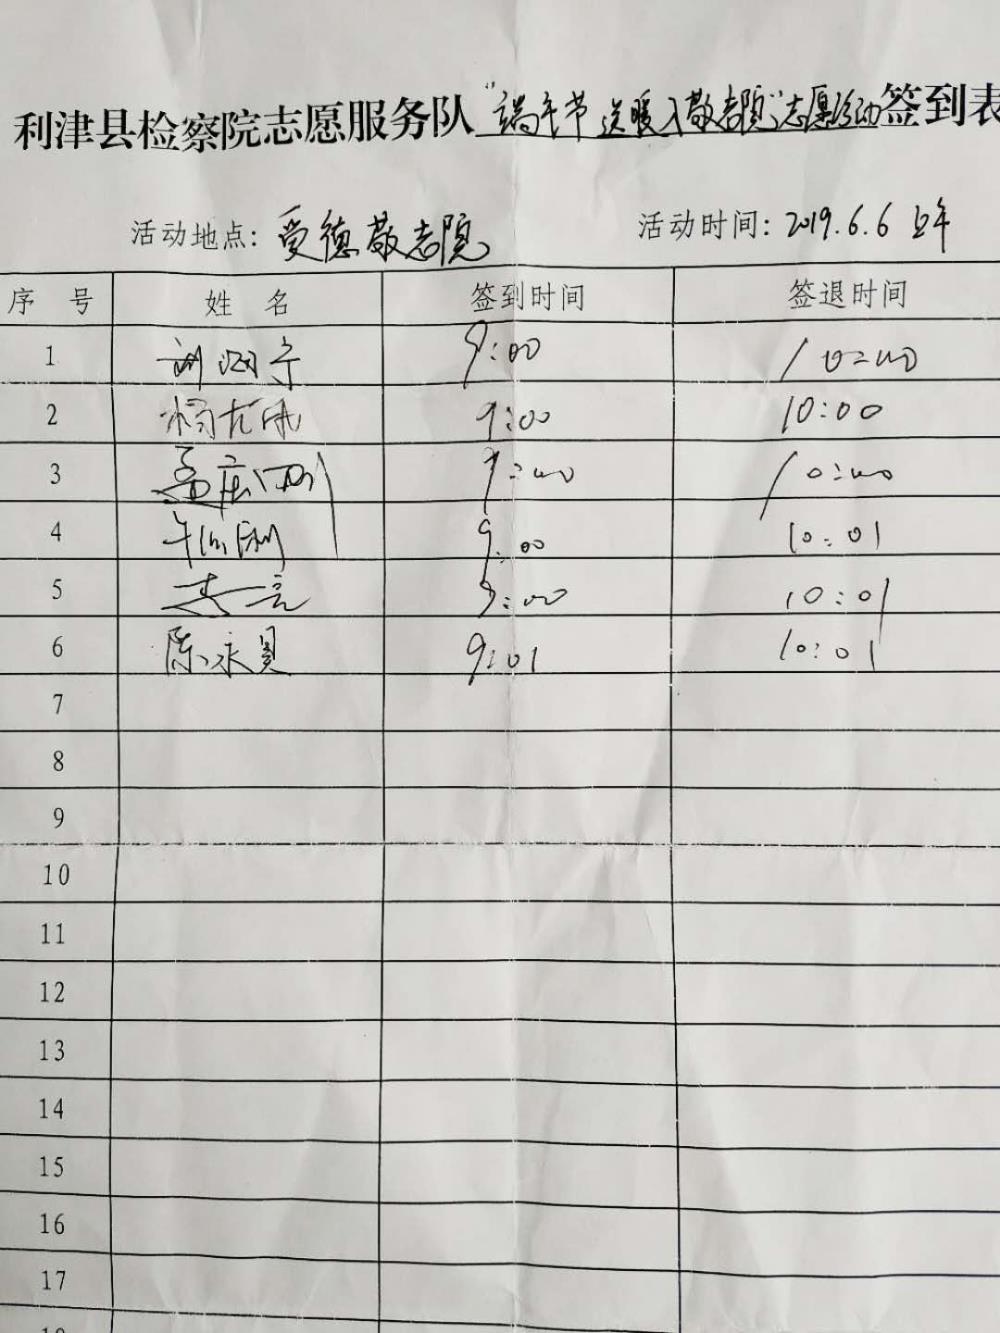 利津县检察院志愿服务队"端午节送暖入敬老院"志愿活动签到表
活动地点：爱德敬老院 活动时间：2019.6.6 上午
序 号 姓 名 签到时间 签退时间
1 9:00 10:00
2 9:00 10:00
3 9:00 10:00
4 9:00 10:01
5 9:00 10:01
6 陈永 9:01 10:01
7
8
9
10
11
12
13
14
15
16
17
18